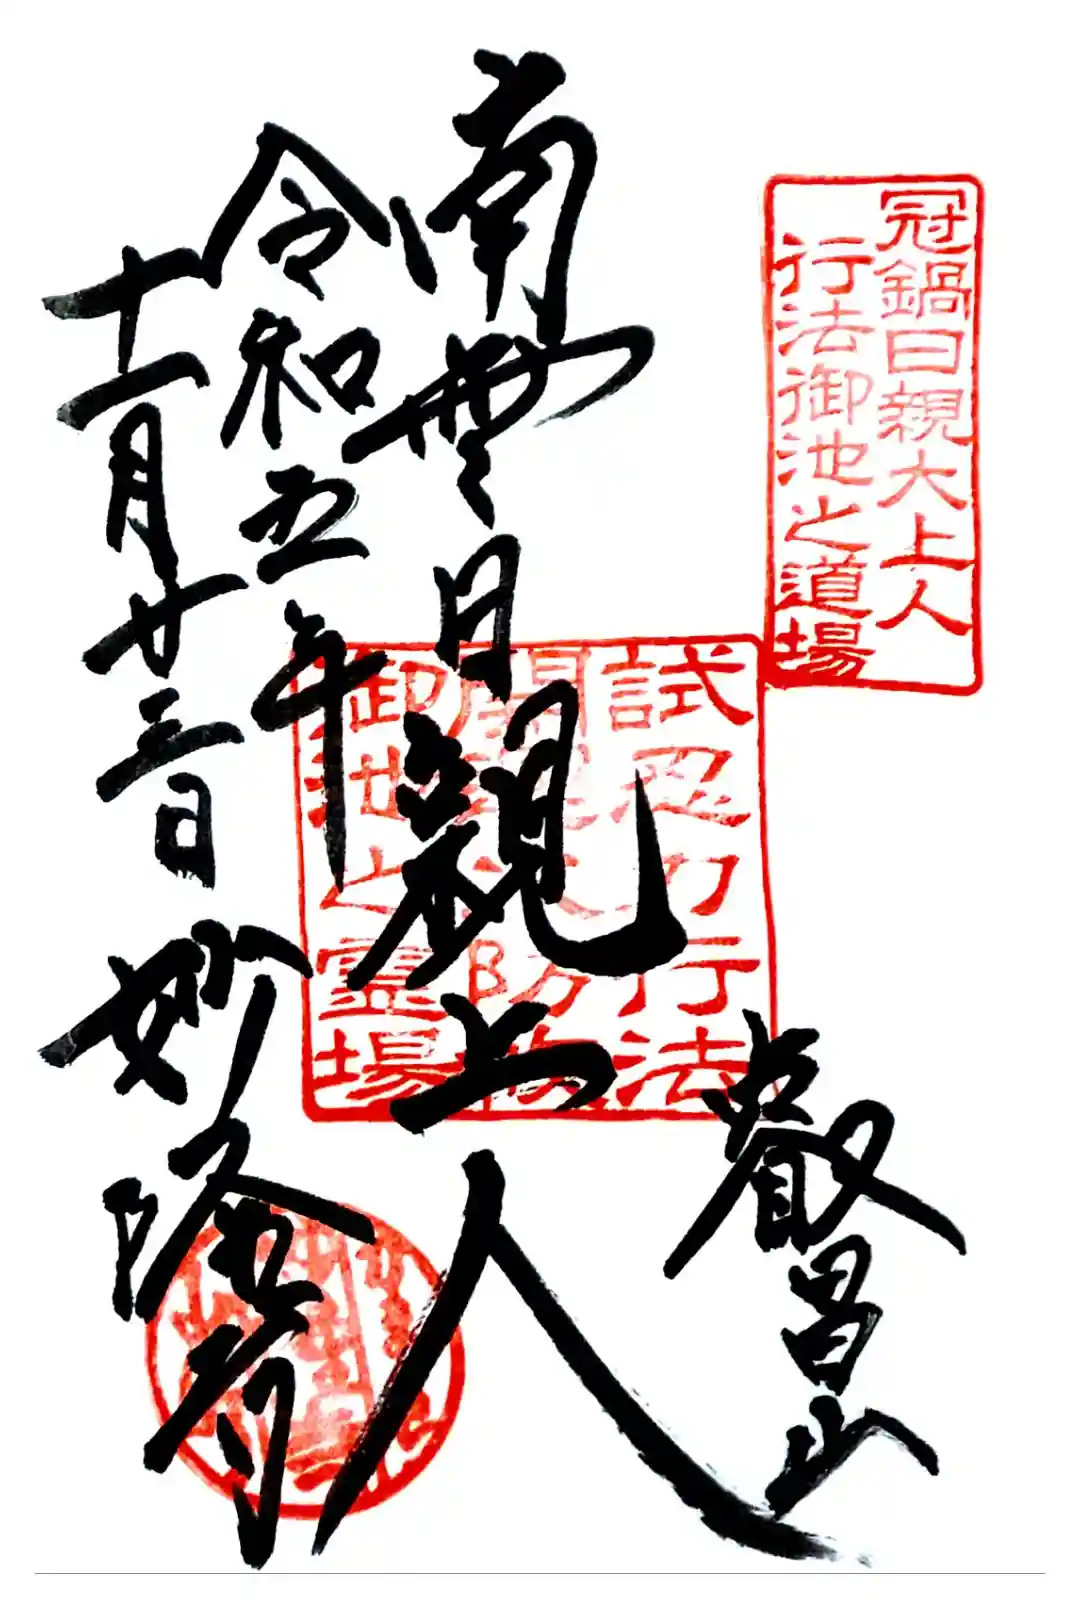 冠鍋日親大上人
行法御池之道場
叡昌山
試忍力行法
御池之霊場
南無日親上人
令和五年
十一月廿三日
妙隆寺